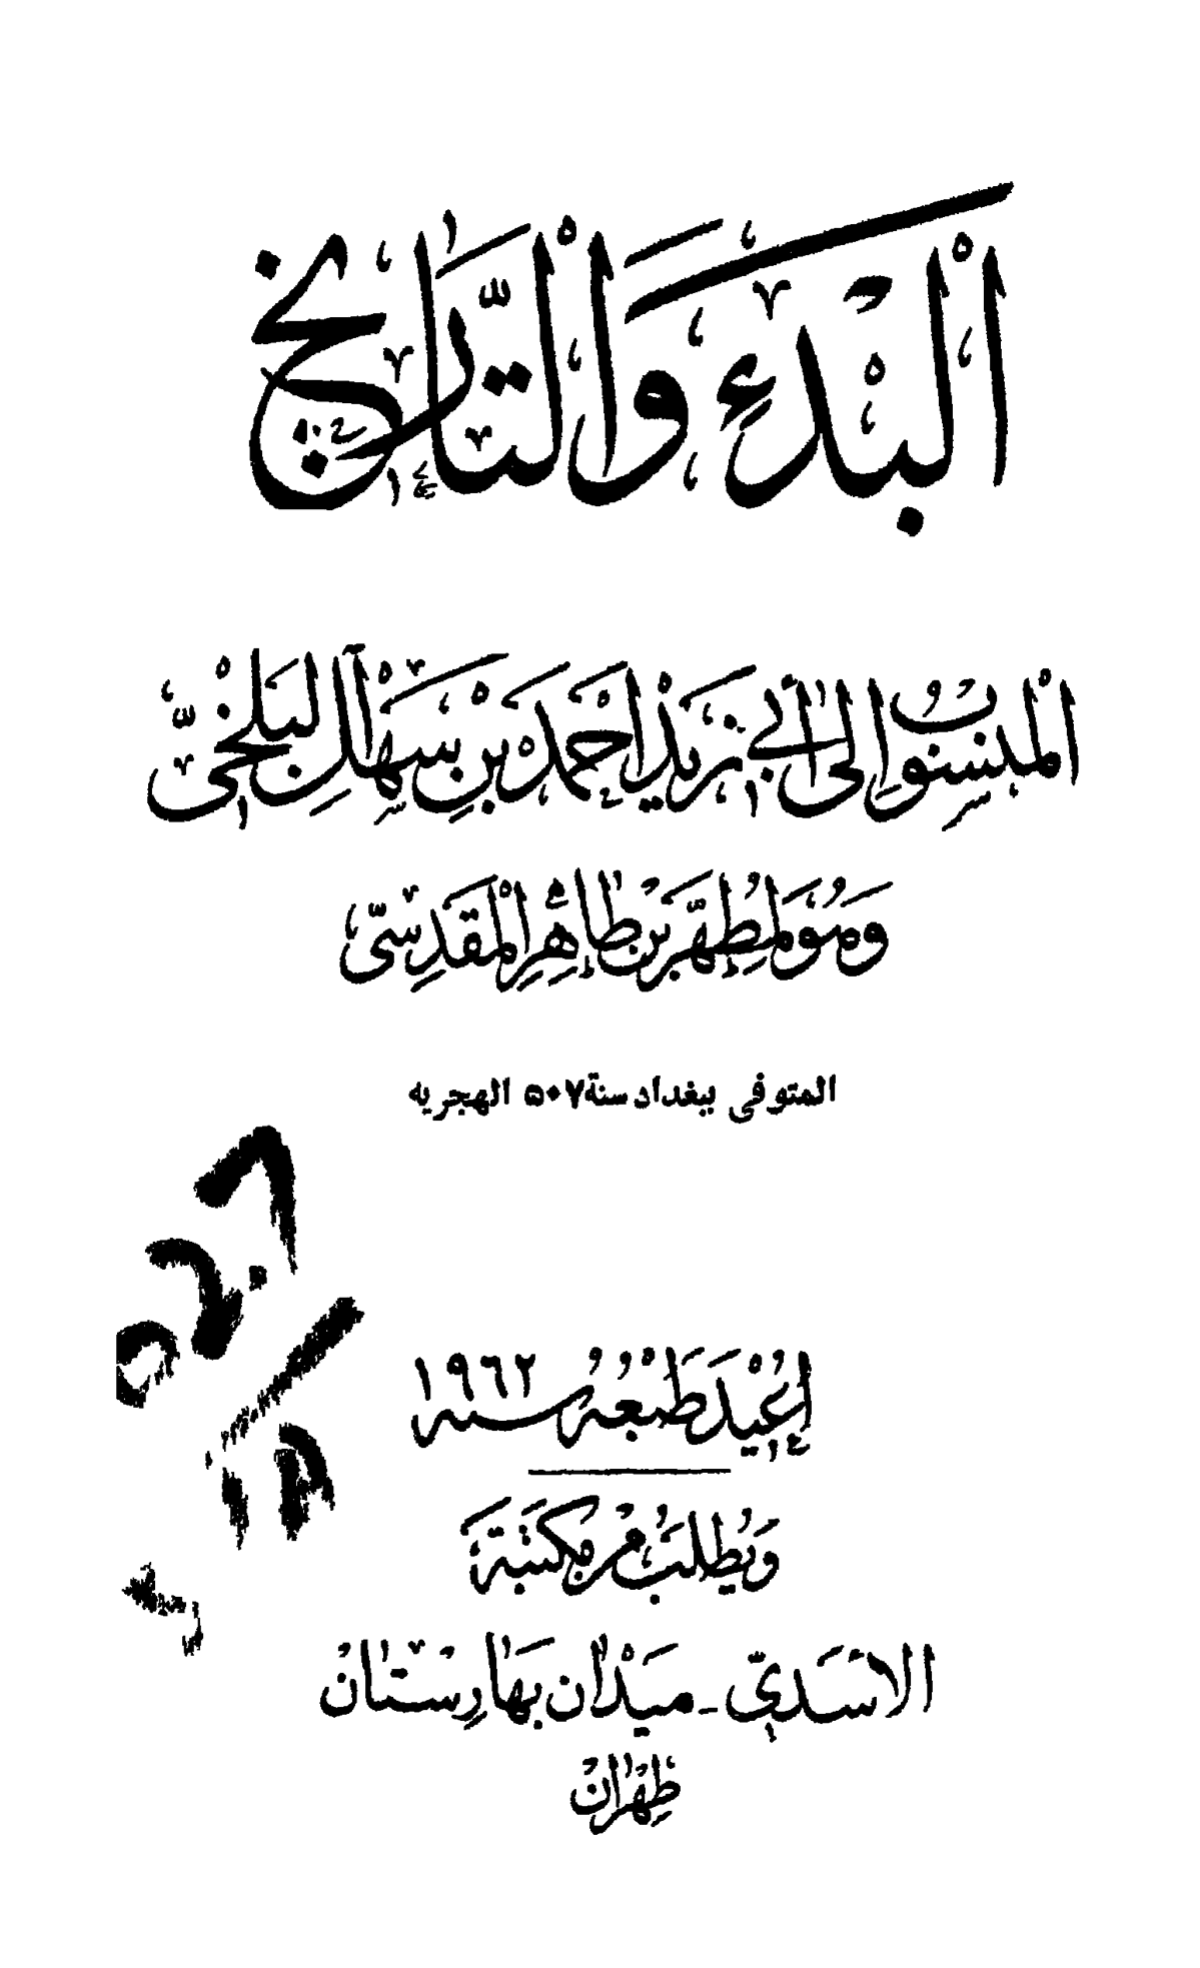 البدء والتاريخ
المنسوب الى أبي زيد احمد بن سهل البلخي
وهو لمطهر بن طاهر المقدسي
المتوفى ببغداد سنة ۵۰۷ الهجريه
اعيد طبعه سنه ۱۹۶۲
ويطلب من مكتبة
الاسدي - ميدان بهارستان
طهران